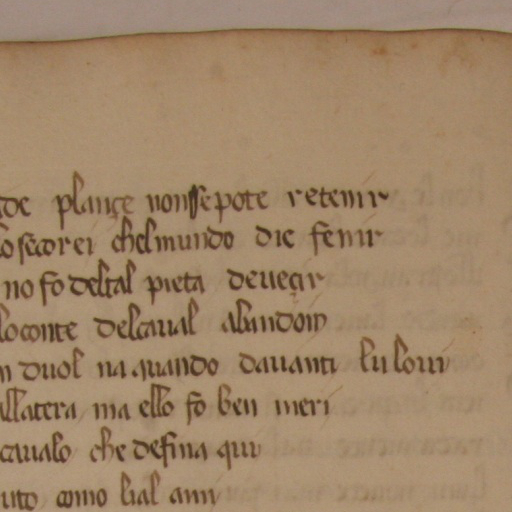 de plançe nonsepote retenir
secorei chelmundo die fenir
no fo deltal pieta deveçir
loconte delcaval abandon
duol na quando davanti lu lovi
allatera ma ello fo ben meri
cavalo che defina qui
como lial ami